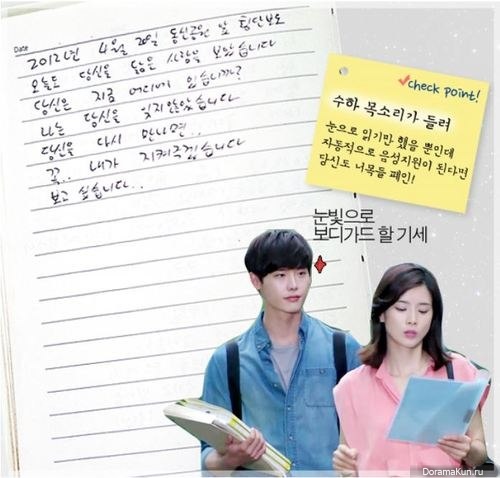 Date
2012년 4월 20일 동신공원 앞 횡단보도
오늘도 당신을 닮은 사람을 보았습니다
당신은 지금 어디에 있습니까?
나는 당신을 잊지않았습니다
당신을 다시 만나면..
꼭.. 내가 지켜주겠습니다
보고 싶습니다..
check point!
수하 목소리가 들려
눈으로 읽기만 했을 뿐인데
자동적으로 음성지원이 된다면
당신도 너목들 폐인!
눈빛으로
보디가드 할 기세
DoramaKun.ru